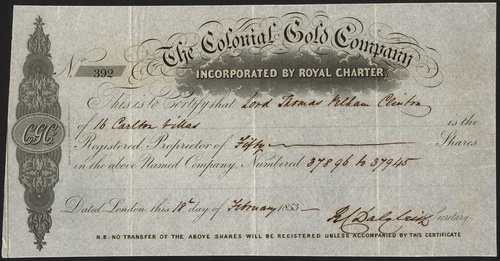 The Colonial Gold Company
No 392
INCORPORATED BY ROYAL CHARTER
This is to Certify that Lord Thomas Pelham Clinton
of 16 Carlton Villas is the
Registered Proprietor of Fifty Shares
in the above Named Company, Numbered 37896 to 37945
Dated London, this 18th day of February 1853
Secretary.
C.G.Co.
N.B. NO TRANSFER OF THE ABOVE SHARES WILL BE REGISTERED UNLESS ACCOMPANIED BY THIS CERTIFICATE